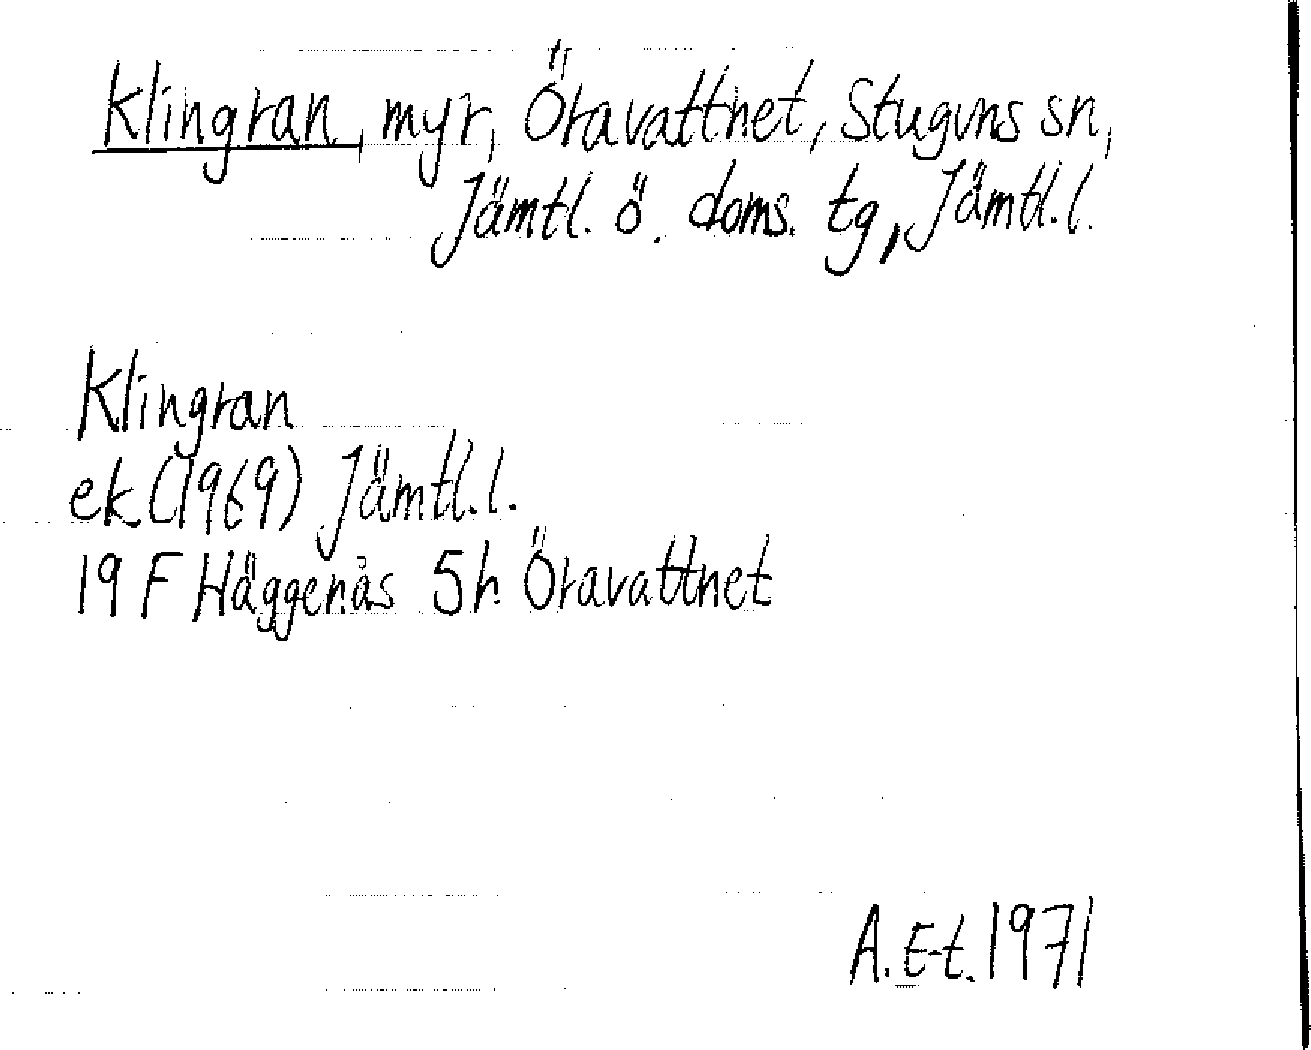 Klingran, myr, Öravattnet, Stuguns sn,
Jämtl. ö. doms. tg, Jämtl. l.
Klingran
ek (1969) Jämtl. l.
19 F Häggenås 5h Öravattnet
A. E-t. 1971